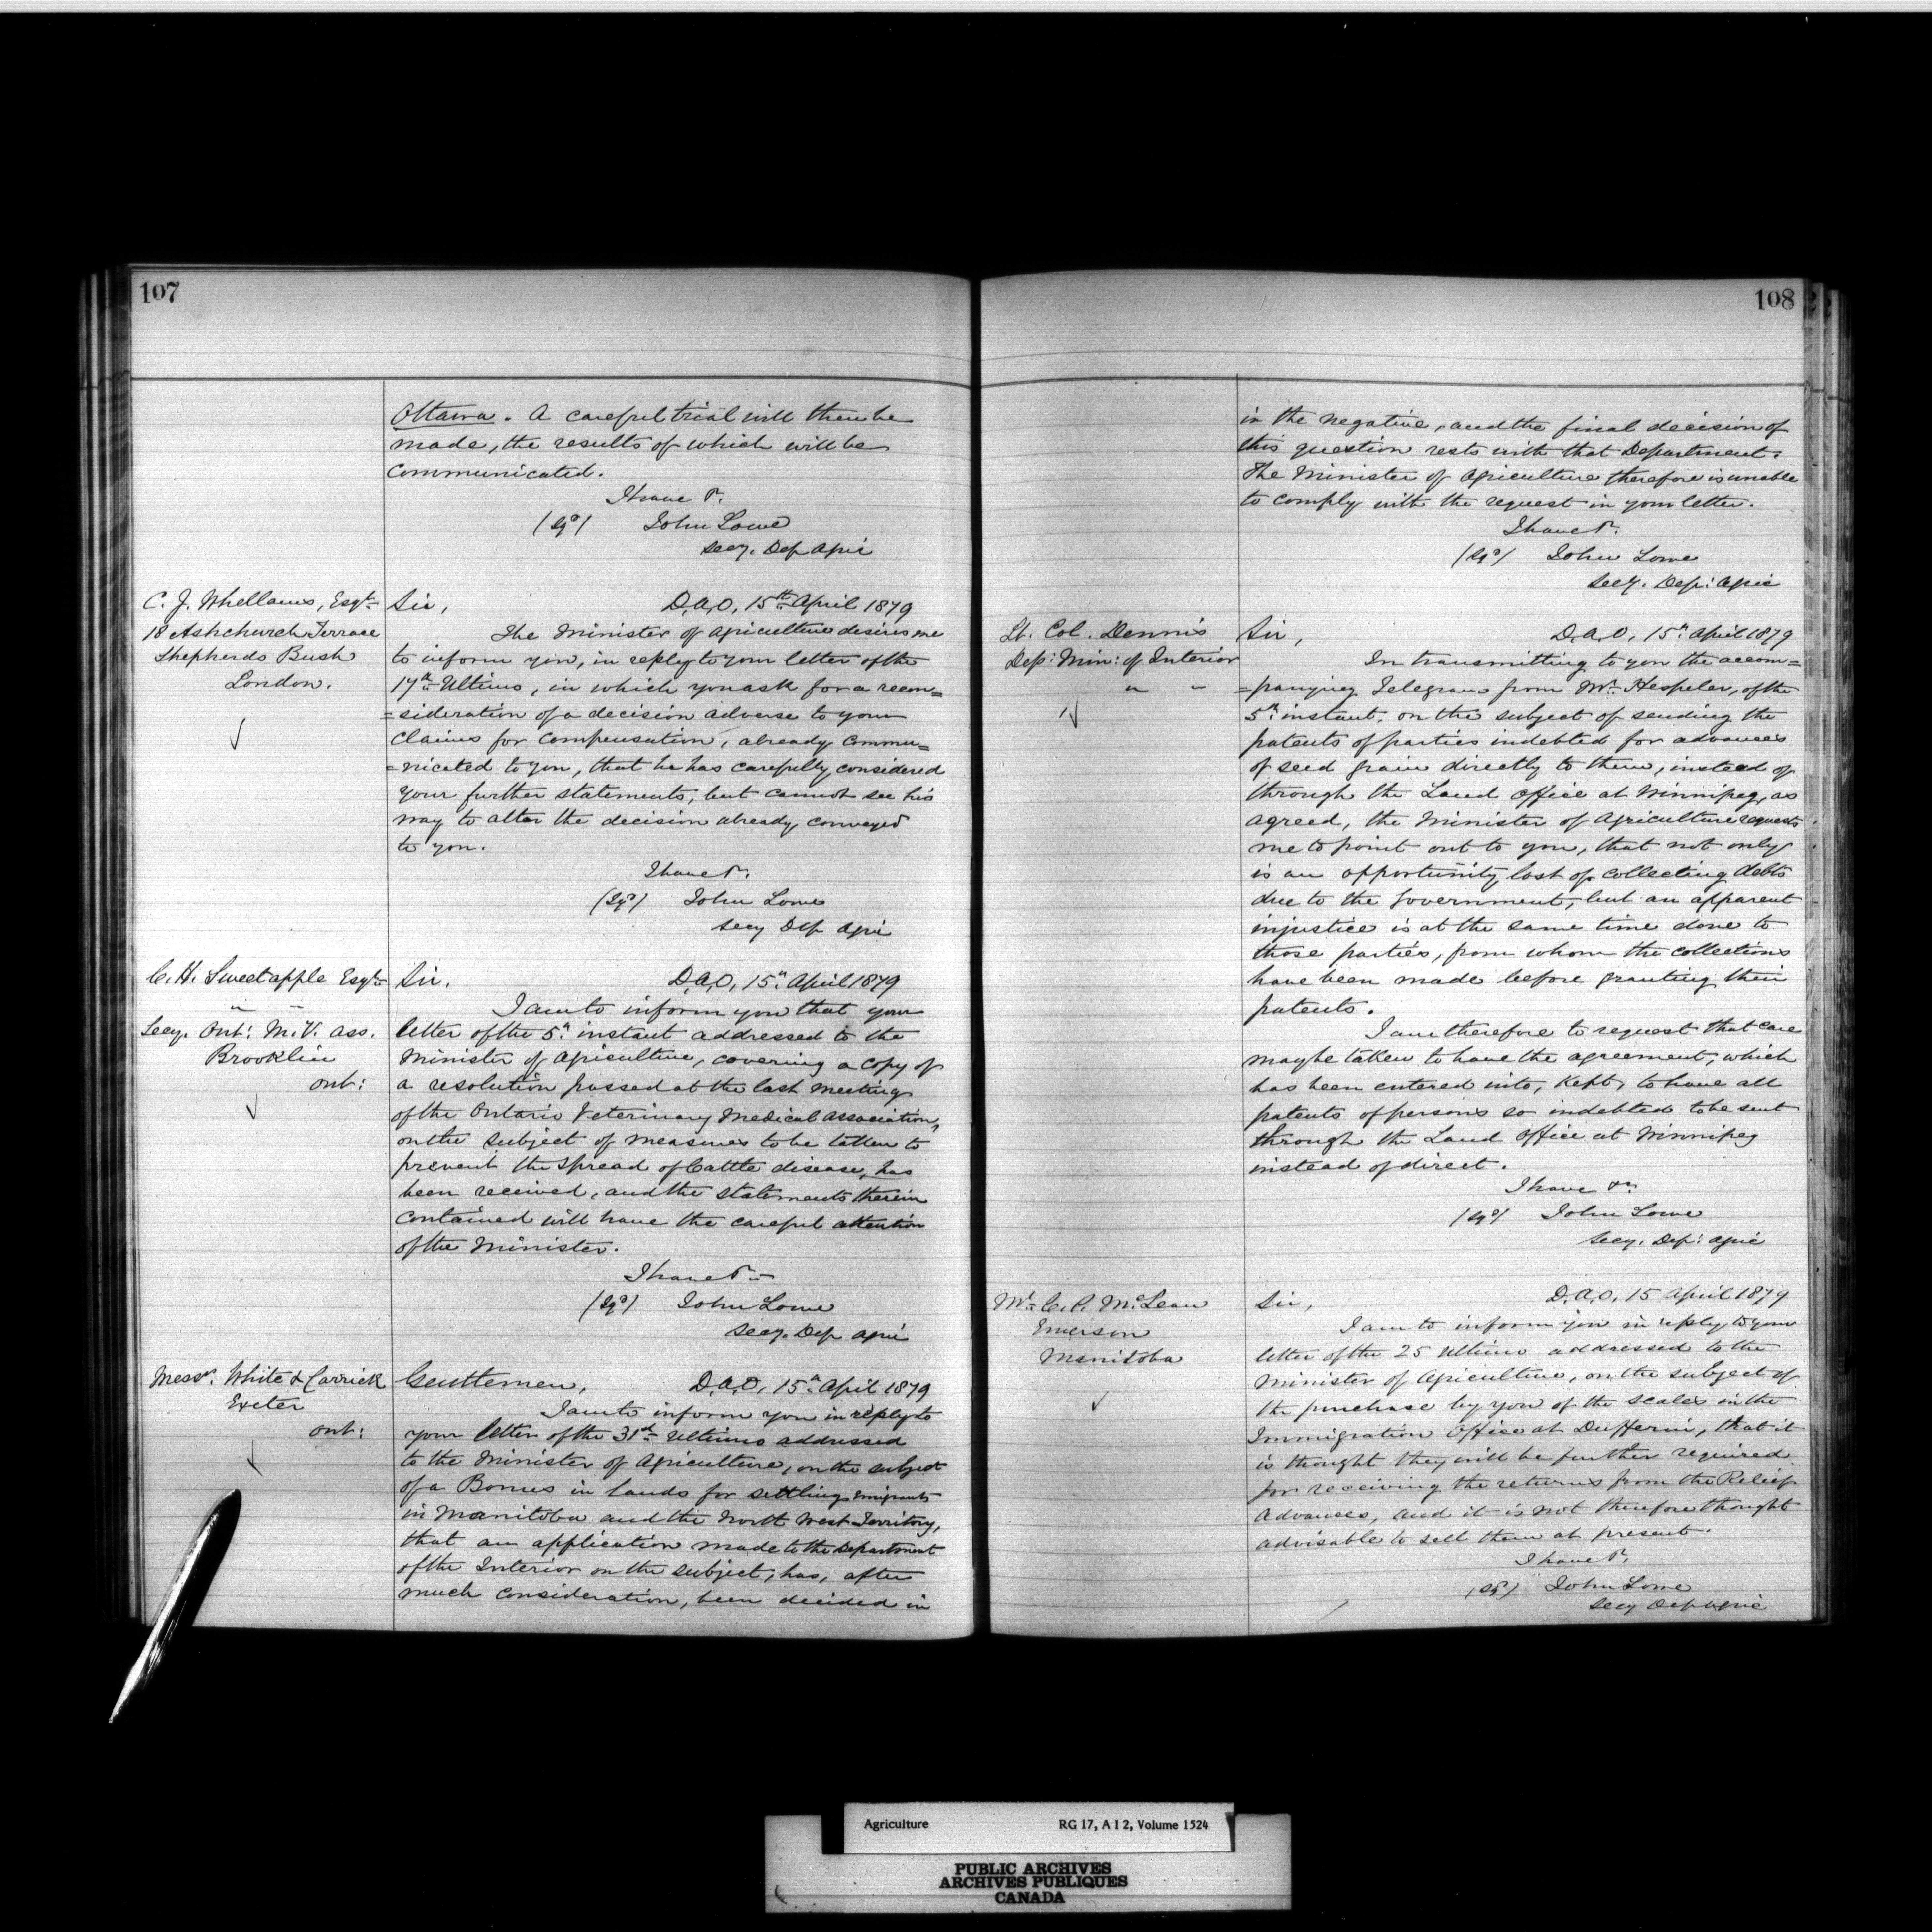 107
Ottawa. A careful trial will then be
made, the results of which will be
communicated.
I have &c.
(Sgd) John Lowe
Secy. Dep Agri
C. J. Whellams, Esqr.
18 Ashchurch Terrace
Shepherds Bush
London.
Sir, D.A.O, 15th April 1879
The Minister of Agriculture desires me
to inform you, in reply to your letter of the
17th Ultimo, in which you ask for a recon=
=sideration of a decision adverse to your
claims for compensation, already commu=
=nicated to you, that he has carefully considered
your further statements, but cannot see his
way to alter the decision already conveyed
to you.
I have &c.
(Sgd) John Lowe
Secy Dep Agri
C. H. Sweetapple Esqr
" "
Secy. Ont: M.V. Ass.
Brooklin
Ont:
Sir, D.A.O, 15th April 1879
I am to inform you that your
letter of the 5th instant addressed to the
Minister of Agriculture, covering a copy of
a resolution passed at the last meeting
of the Ontario Veterinary Medical Association,
on the subject of measures to be taken to
prevent the spread of Cattle disease, has
been received, and the statements therein
contained will have the careful attention
of the Minister.
I have &c
(Sgd) John Lowe
Secy. Dep Agri
Messrs. White & Carrick
Exeter
Ont:
Gentlemen, D.A.O, 15th April 1879
I am to inform you in reply to
your letter of the 31st Ultimo addressed
to the Minister of Agriculture, on the subject
of a Bonus in lands for settling emigrants
in Manitoba and the North West Territory,
that an application made to the Department
of the Interior on the subject, has, after
much consideration, been decided in
108
in the negative, and the final decision of
this question rests with that Department.
The Minister of Agriculture therefore is unable
to comply with the request in your letter.
I have &c.
(Sgd) John Lowe
Secy. Dep: Agric
Lt. Col. Dennis
Dep: Min: of Interior
" "
Sir, D.A.O, 15th April 1879
In transmitting to you the accom=
=panying Telegram from Mr. Hespeler, of the
5th instant, on the subject of sending the
patents of parties indebted for advances
of seed grain directly to them, instead of
through the Land Office at Winnipeg, as
agreed, the Minister of Agriculture requests
me to point out to you, that not only
is an opportunity lost of collecting debts
due to the Government, but an apparent
injustice is at the same time done to
those parties, from whom the collections
have been made before granting their
patents.
I am therefore to request that care
may be taken to have the agreement, which
has been entered into, kept, to have all
patents of persons so indebted to be sent
through the Land Office at Winnipeg
instead of direct.
I have &c.
(Sgd) John Lowe
Secy. Dep: Agric
Mr. C. P. McLean
Emerson
Manitoba
Sir, D.A.O, 15 April 1879
I am to inform you in reply to your
letter of the 25 Ultimo addressed to the
Minister of Agriculture, on the subject of
the purchase by you of the scales in the
Immigration Office at Dufferin, that it
is thought they will be further required
for receiving the returns from the Relief
Advances, and it is not therefore thought
advisable to sell them at present.
I have &c.
(Sgd) John Lowe
Secy Dep Agric
Agriculture RG 17, A I 2, Volume 1524
PUBLIC ARCHIVES
ARCHIVES PUBLIQUES
CANADA